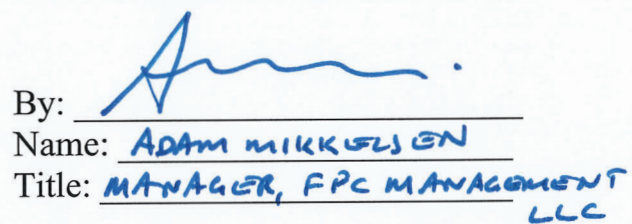 By:
Name: ADAM MIKKELSEN
Title: MANAGER, FPC MANAGEMENT
LLC